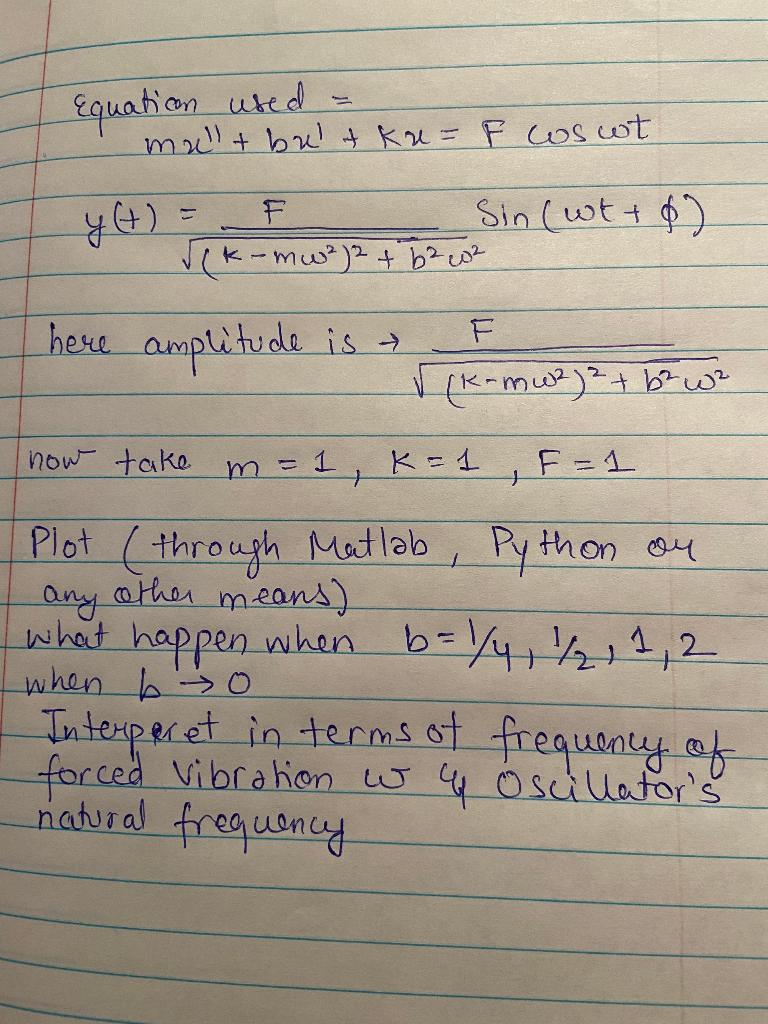 Equation used =
mx'' + bx' + Kx = F cos wt
y(t) = F / √(K - mw²)² + b²w² Sin (wt + φ)
here amplitude is → F / √(K - mw²)² + b²w²
now take m = 1, K = 1, F = 1
Plot (through Matlab, Python or
any other means)
what happen when b = 1/4, 1/2, 1, 2
when b → 0
Interperet in terms of frequency of
forced vibration w & Oscillator's
natural frequency